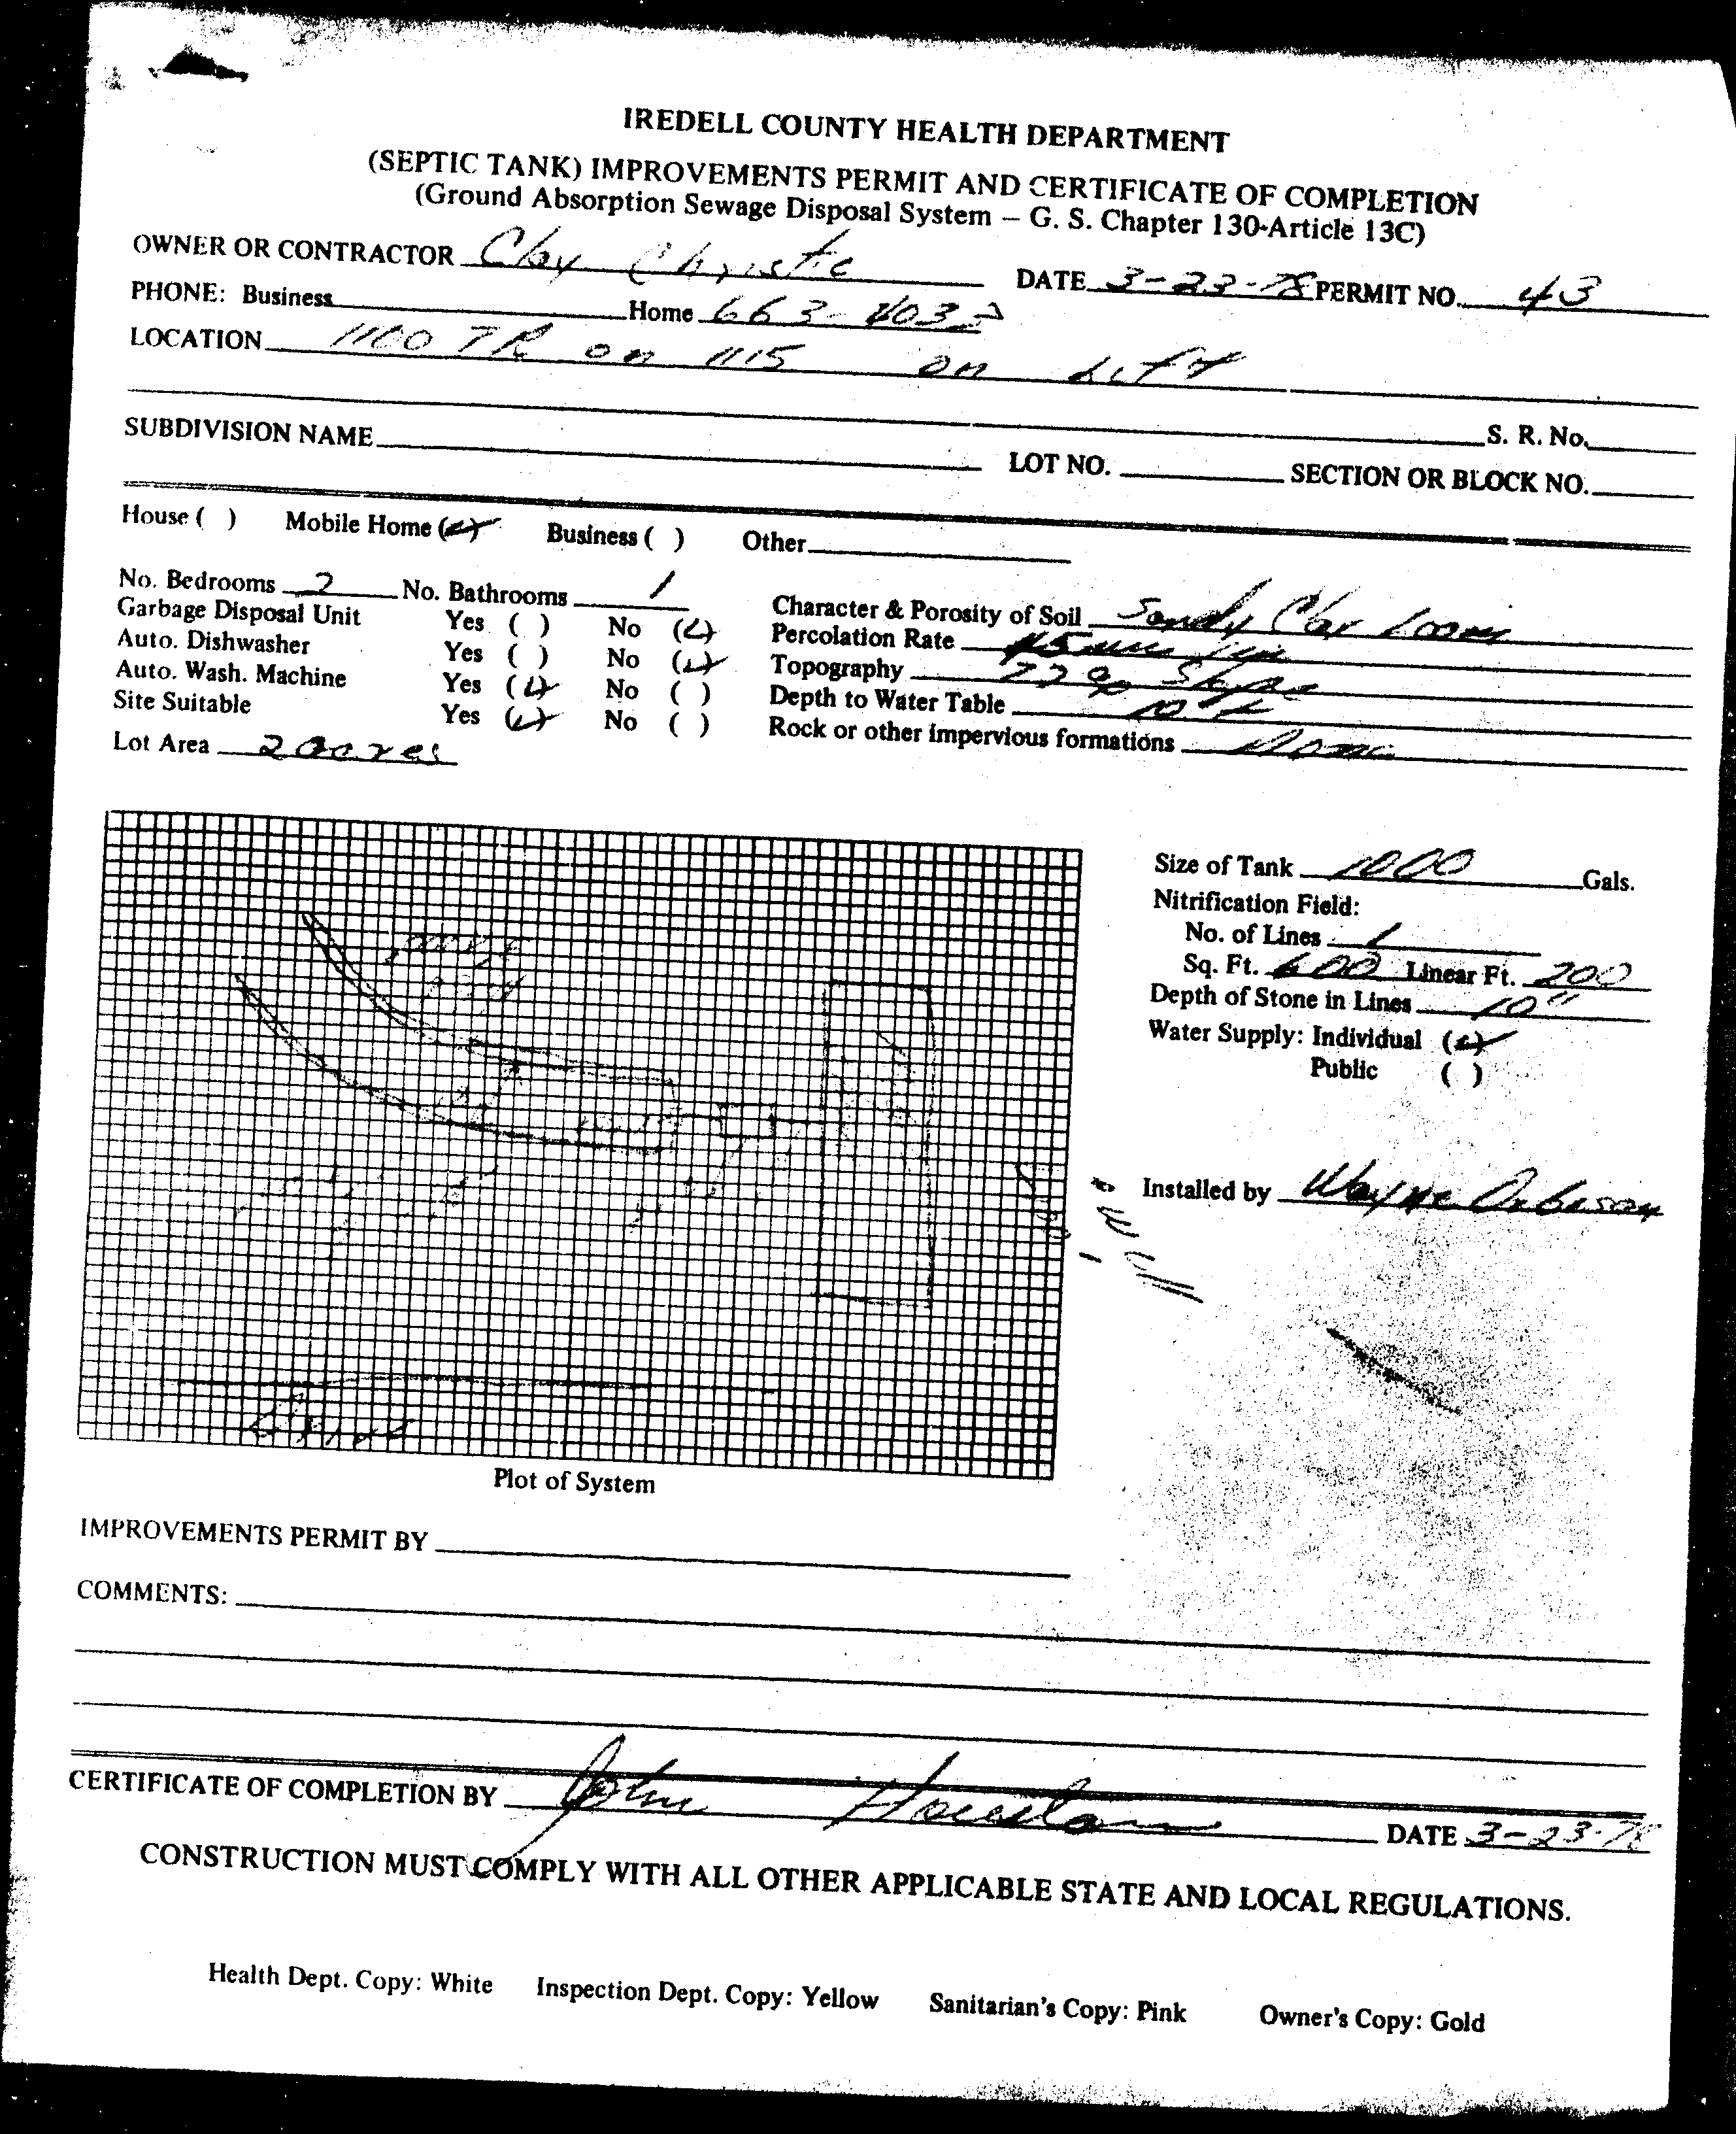 IREDELL COUNTY HEALTH DEPARTMENT
(SEPTIC TANK) IMPROVEMENTS PERMIT AND CERTIFICATE OF COMPLETION
(Ground Absorption Sewage Disposal System — G. S. Chapter 130-Article 13C)
OWNER OR CONTRACTOR Clay Christie DATE 3-23-78 PERMIT NO. 43
PHONE: Business Home 663-4033
LOCATION 1100 TR on 1115 on Left
S. R. No.
SUBDIVISION NAME LOT NO. SECTION OR BLOCK NO.
House ( ) Mobile Home (✓) Business ( ) Other
No. Bedrooms 2 No. Bathrooms 1 Character & Porosity of Soil Sandy Clay Loam
Garbage Disposal Unit Yes ( ) No (✓) Percolation Rate 45
Auto. Dishwasher Yes ( ) No (✓) Topography Slope
Auto. Wash. Machine Yes (✓) No ( ) Depth to Water Table 10
Site Suitable Yes (✓) No ( ) Rock or other impervious formations None
Lot Area 2 acres
Size of Tank 1000 Gals.
Nitrification Field:
No. of Lines 1
Sq. Ft. 600 Linear Ft. 200
Depth of Stone in Lines 10"
Water Supply: Individual (✓)
Public ( )
Installed by Wayne
Well
Plot of System
IMPROVEMENTS PERMIT BY
COMMENTS:
CERTIFICATE OF COMPLETION BY John Houston DATE 3-23-78
CONSTRUCTION MUST COMPLY WITH ALL OTHER APPLICABLE STATE AND LOCAL REGULATIONS.
Health Dept. Copy: White Inspection Dept. Copy: Yellow Sanitarian's Copy: Pink Owner's Copy: Gold